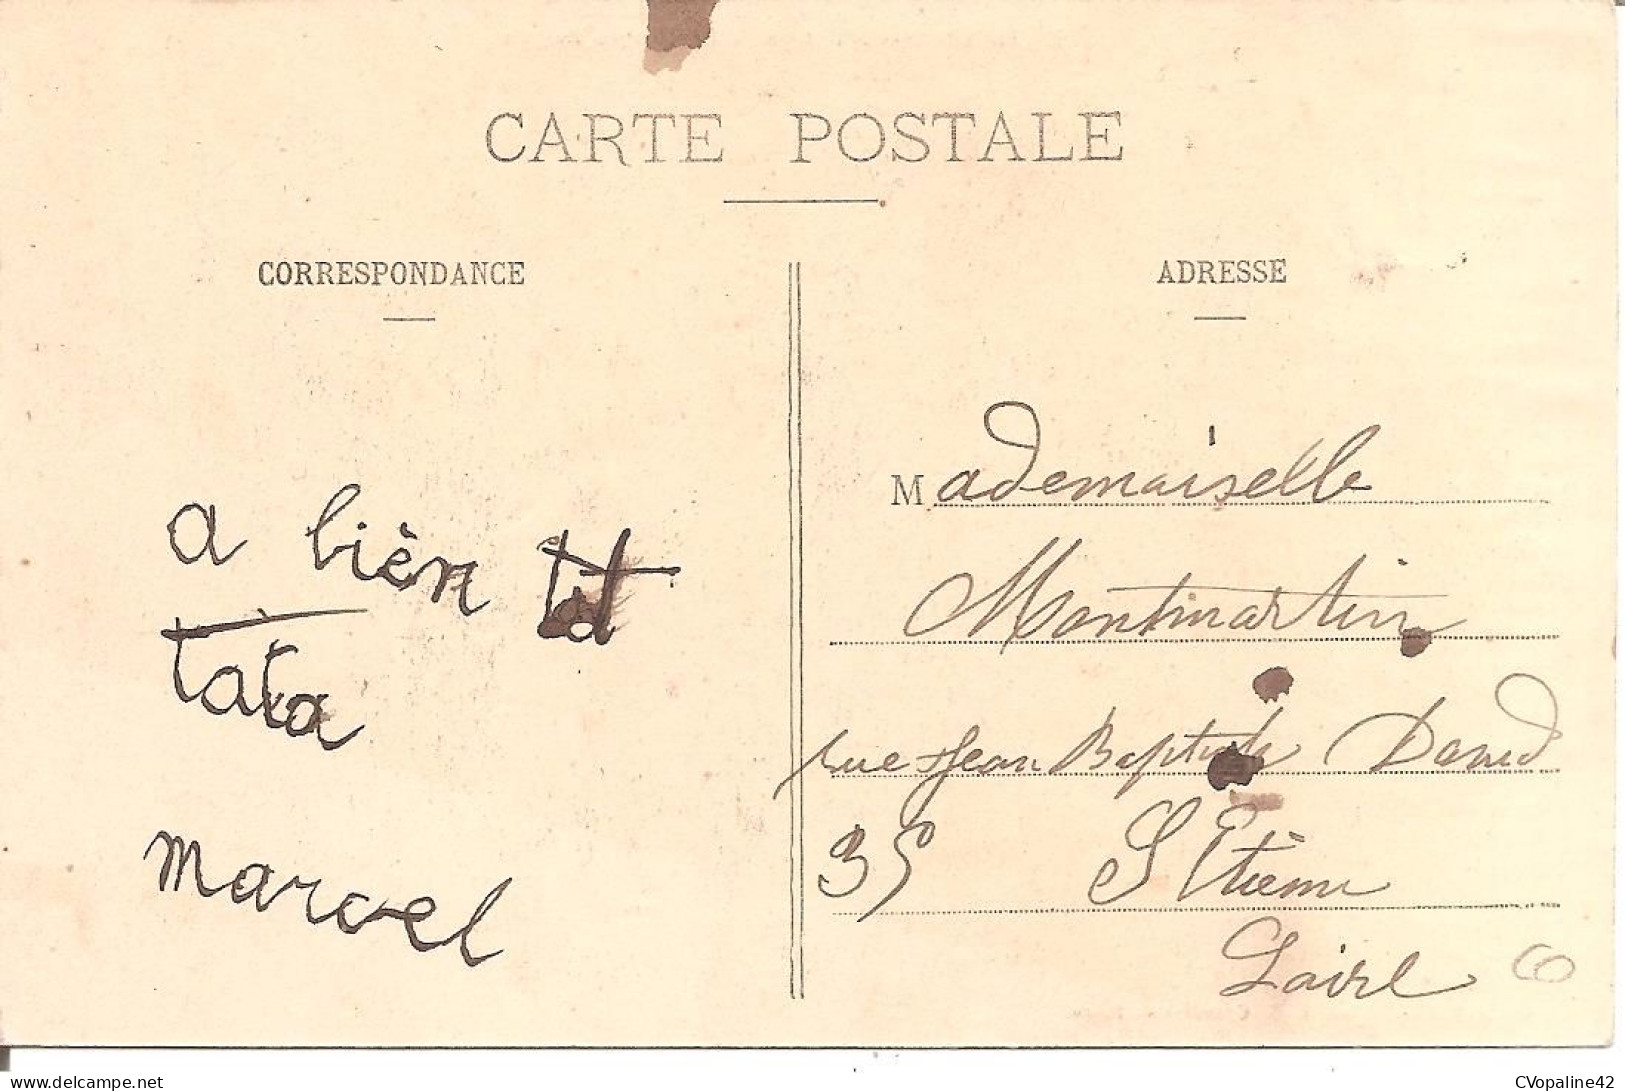 CARTE POSTALE
CORRESPONDANCE
ADRESSE
a bièn tot
tata
marcel
Mademoiselle
Montmartin
rue Jean Baptiste David
35 St Etienne
Loire
CVopaline42